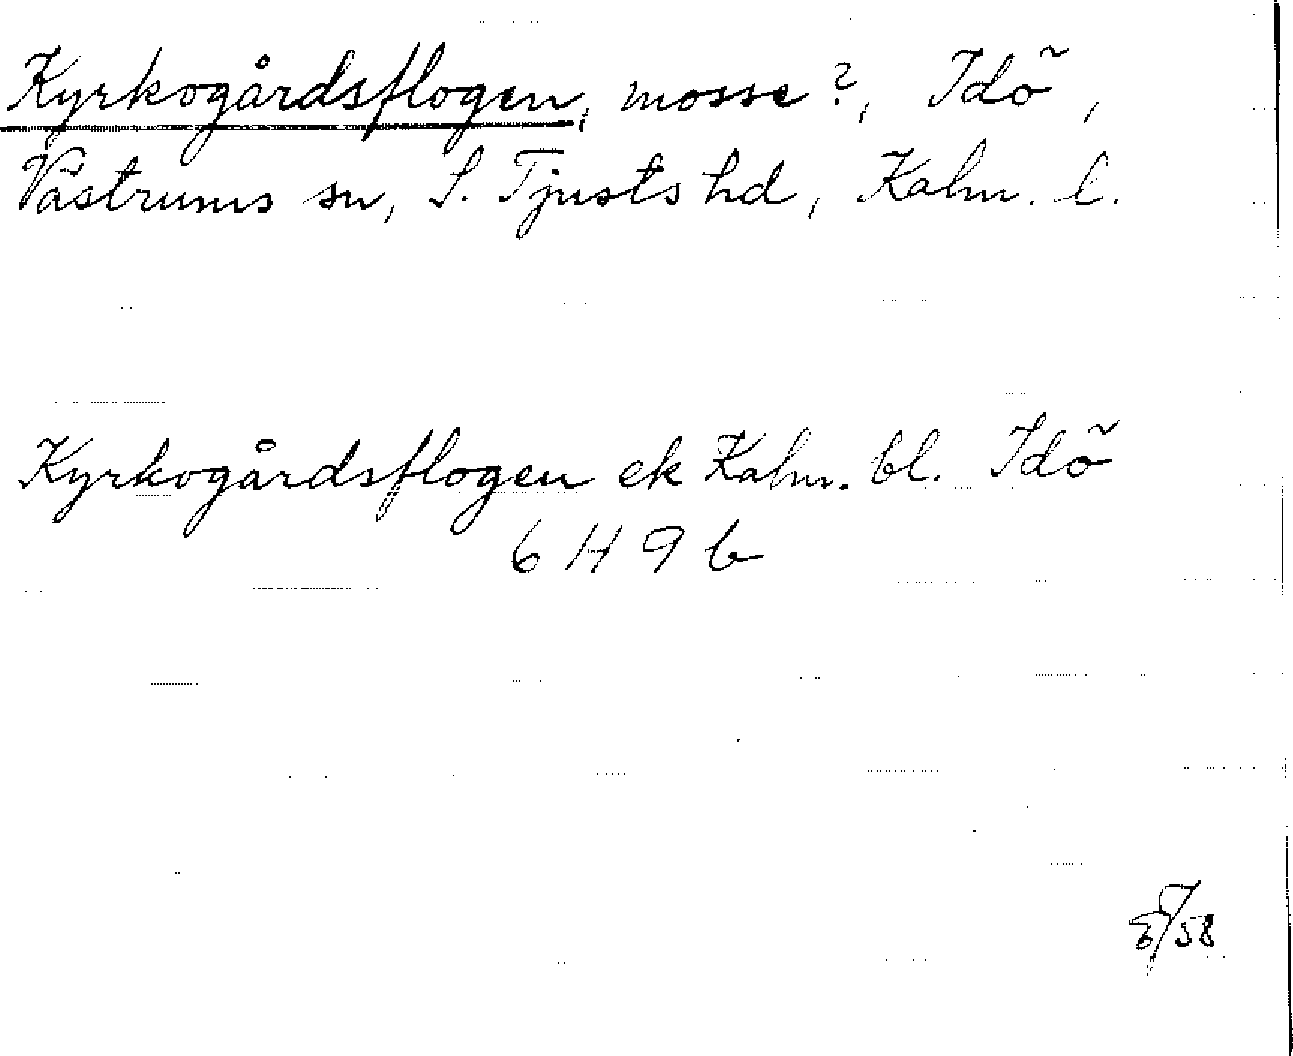 Kyrkogårdsflogen, mosse?, Idö,
Västrums sn, S. Tjusts hd, Kalm. l.
Kyrkogårdsflogen ek Kalm. bl. Idö
6 H 9 b
/58